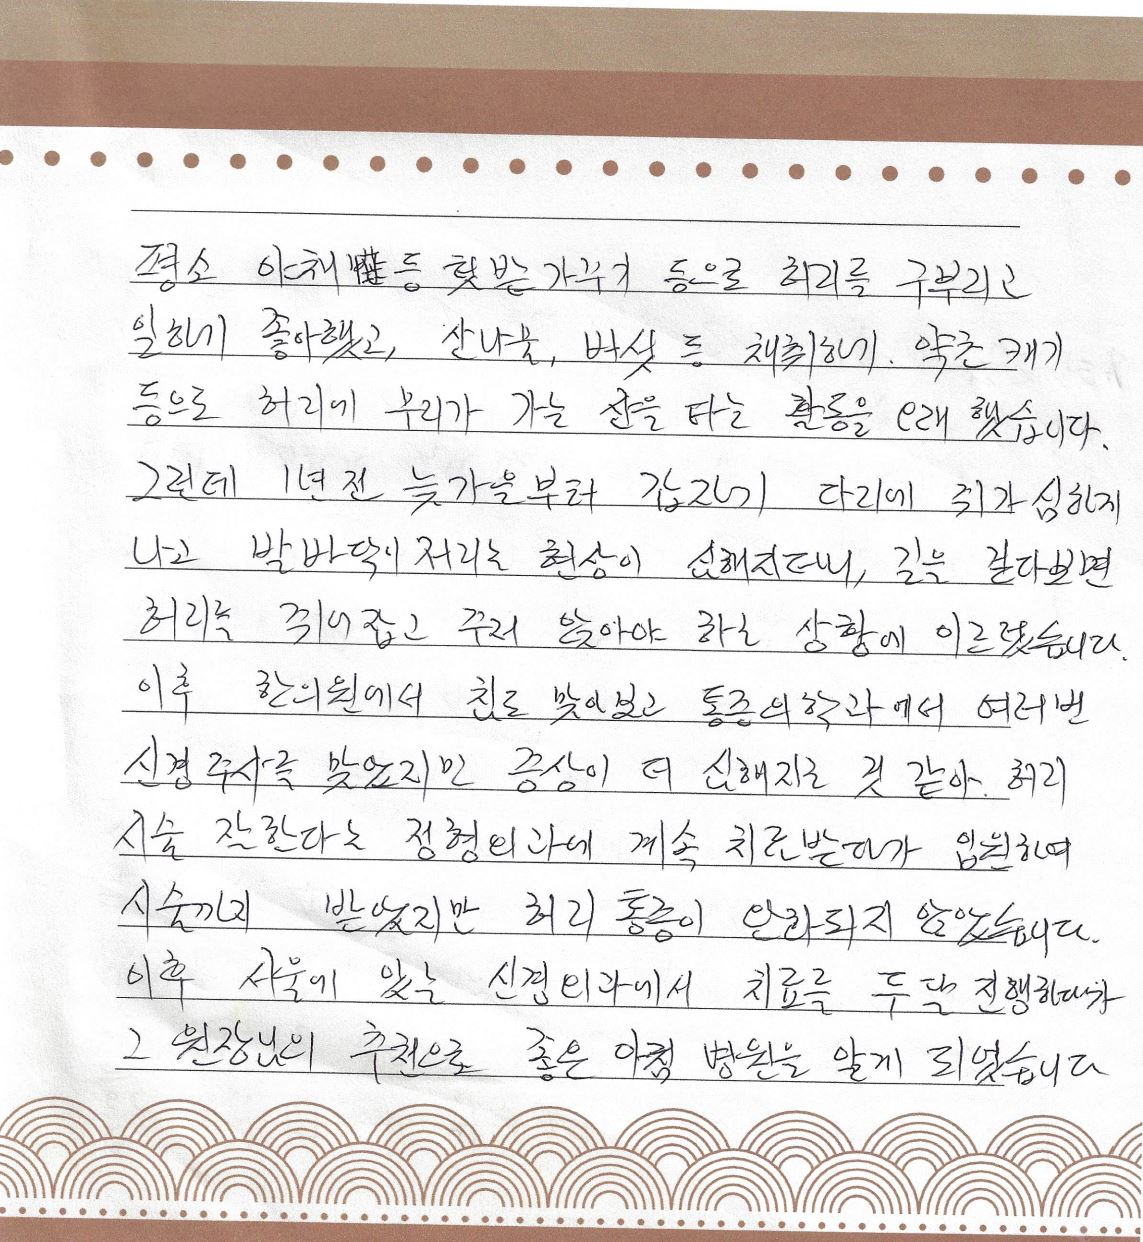 평소 야채 등 텃밭 가꾸기 등으로 허리를 구부리고
일하기 좋아했고, 산나물, 버섯 등 채취하기. 약초 캐기
등으로 허리에 무리가 가는 산을 타는 활동을 오래 했습니다.
그런데 1년 전 늦가을부터 갑자기 다리에 쥐가 심하게
나고 발바닥이 저리는 현상이 심해지더니, 길을 걷다보면
허리를 쥐어잡고 주저 앉아야 하는 상황에 이르렀습니다.
이후 한의원에서 침도 맞아보고 통증의학과에서 여러번
신경 주사를 맞았지만 증상이 더 심해지는 것 같아. 허리
시술 잘한다는 정형외과에 계속 치료받다가 입원하여
시술까지 받았지만 허리 통증이 완화되지 않았습니다.
이후 서울에 있는 신경외과에서 치료를 두달 진행하다가
그 원장님의 추천으로 좋은아침 병원을 알게 되었습니다